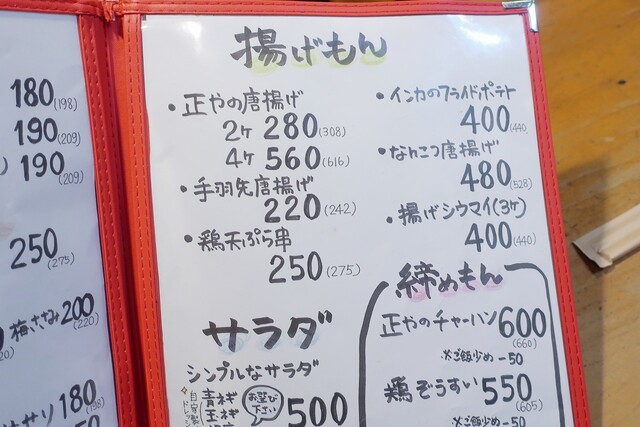 180(198)
190(209)
190(209)
250(275)
梅ささみ200(220)
180(198)
揚げもん
・正やの唐揚げ
2ヶ 280(308)
4ヶ 560(616)
・手羽先唐揚げ
220(242)
・鶏天ぷら串
250(275)
サラダ
シンプルなサラダ
青ねぎ
玉ねぎ
お選び下さい
500
・インカのフライドポテト
400(440)
・なんこつ唐揚げ
480(528)
・揚げシウマイ(3ヶ)
400(440)
締めもん
正やのチャーハン 600(660)
※ご飯少め -50
鶏ぞうすい 550(605)
※ご飯少め -50